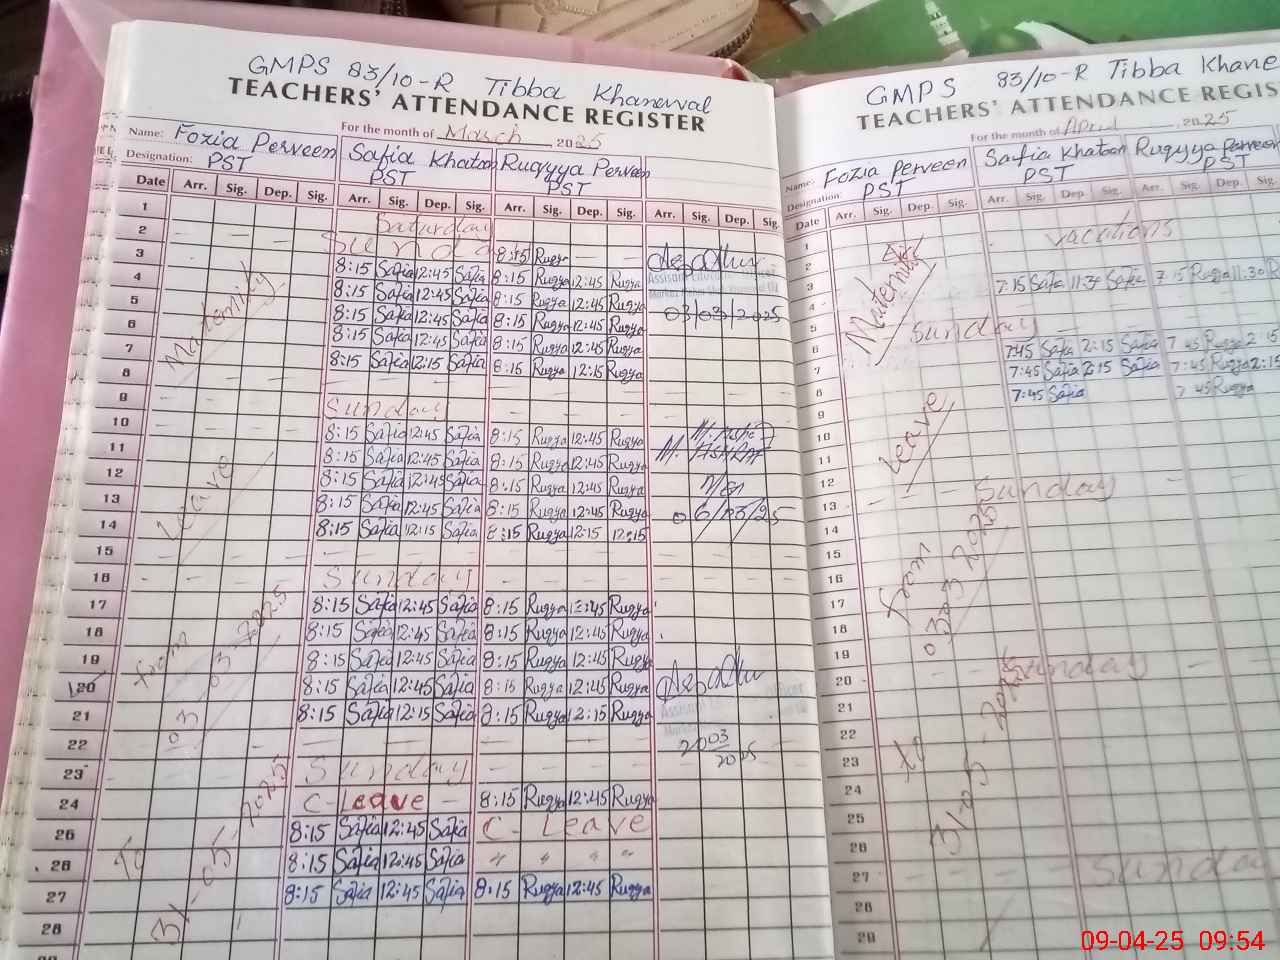 GMPS 83/10-R Tibba Khanewal
TEACHERS' ATTENDANCE REGISTER
For the month of March 2025
Name: Fozia Perveen Safia Khatoon Ruqyya Perveen
Designation: PST PST PST
Date Arr. Sig. Dep. Sig. Arr. Sig. Dep. Sig. Arr. Sig. Dep. Sig. Arr. Sig. Dep. Sig.
1 Saturday
2 Sunday
3 8:15 Safia 12:45 Safia 8:15 Ruqya
4 8:15 Safia 12:45 Safia 8:15 Ruqya 12:45 Ruqya
5 8:15 Safia 12:45 Safia 8:15 Ruqya 12:45 Ruqya 03/03/2025
6 8:15 Safia 12:45 Safia 8:15 Ruqya 12:45 Ruqya
7 8:15 Safia 12:15 Safia 8:15 Ruqya 12:45 Ruqya
8 8:15 Ruqya 12:15 Ruqya
9 Sunday
10 8:15 Safia 12:45 Safia 8:15 Ruqya 12:45 Ruqya
11 8:15 Safia 12:45 Safia 8:15 Ruqya 12:45 Ruqya
12 8:15 Safia 12:45 Safia 8:15 Ruqya 12:45 Ruqya
13 8:15 Safia 12:45 Safia 8:15 Ruqya 12:45 Ruqya
14 8:15 Safia 12:15 Safia 8:15 Ruqya 12:15 12:15
15
16 Sunday
17 8:15 Safia 12:45 Safia 8:15 Ruqya 12:45 Ruqya
18 8:15 Safia 12:45 Safia 8:15 Ruqya 12:45 Ruqya
19 8:15 Safia 12:45 Safia 8:15 Ruqya 12:45 Ruqya
20 8:15 Safia 12:45 Safia 8:15 Ruqya 12:45 Ruqya
21 8:15 Safia 12:15 Safia 8:15 Ruqya 12:15 Ruqya
22 2003
23 Sunday 2025
24 C-Leave 8:15 Ruqya 12:45 Ruqya
26 8:15 Safia 12:45 Safia C-Leave
26 8:15 Safia 12:45 Safia " " " "
27 8:15 Safia 12:45 Safia 8:15 Ruqya 12:45 Ruqya
28
Maternity
Leave
from
03-03-2025
To
31-05-2025
GMPS 83/10-R Tibba Khane
TEACHERS' ATTENDANCE REGIS
For the month of April 2025
Name: Fozia Perveen Safia Khatoon Ruqyya Perveen
Designation: PST PST PST
Date Arr. Sig. Dep. Sig. Arr. Sig. Dep. Sig. Arr. Sig. Dep. Sig.
1 vacations
2
3 7:15 Safia 11:30 Safia 7 15 Ruqya 11:30
4
5 Sunday
6 7:45 Safia 2:15 Safia 7 45 Ruqya 2 15
7 7:45 Safia 2:15 Safia 7:45 Ruqya 2:15
8 7:45 Safia 7 45 Ruqya
9
10
11
12 Sunday
13
14
15
16
17
18
19 Sunday
20
21
22
23
24
25
26
27 Sunda
28
29
Maternity
Leave
from
03 03 2025
to
31-05-2025
09-04-25 09:54